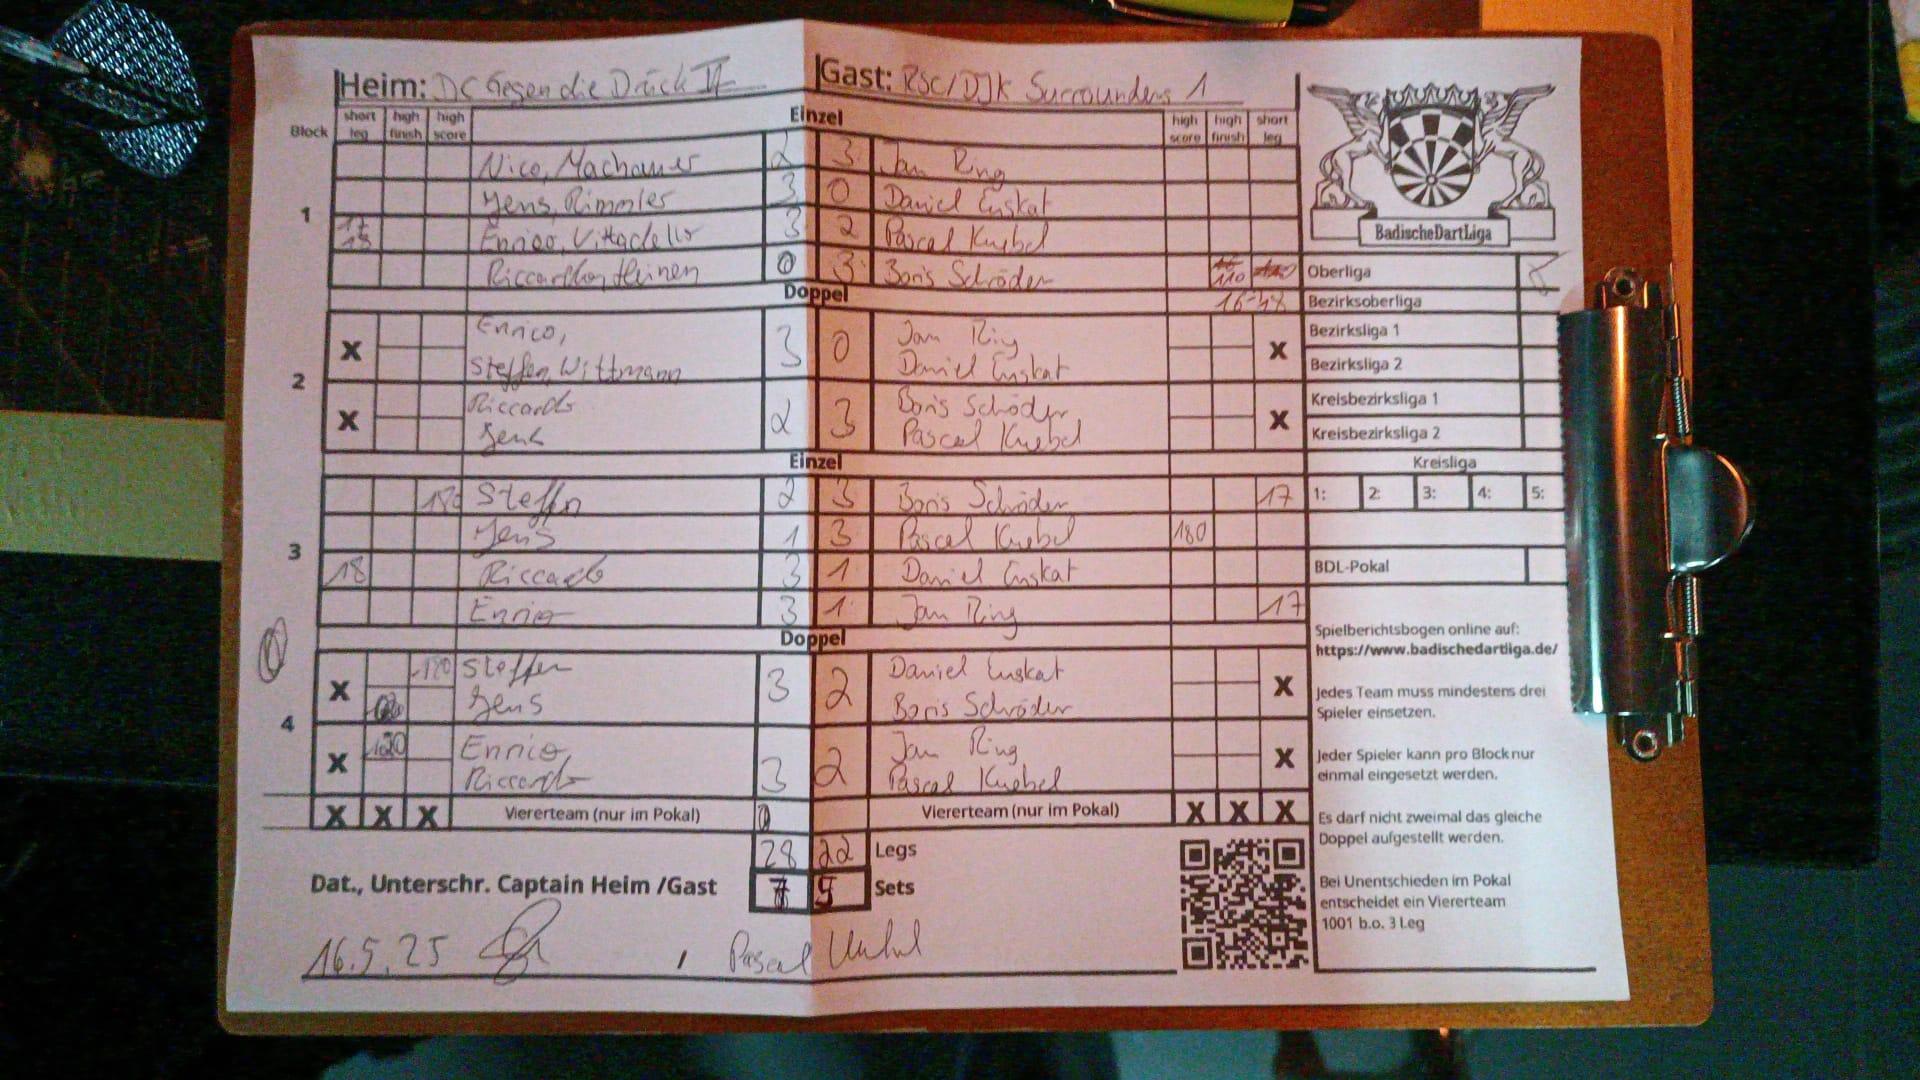 Heim: DC Gegen die Drück II Gast: RSC/DJK Surrounders 1
Block short leg high finish high score Einzel high score high finish short leg
1
Nico, Machauer 2 3 Jan Ring
Jens, Rimmler 3 0 Daniel Enskat
17 18 Enrico, Vittadello 3 2 Pascal Knebel
Riccardo, Heinen 0 3 Boris Schröder 110
Doppel 16-18
2
X Enrico, 3 0 Jan Ring X
Steffen, Wittmann Daniel Enskat
X Riccardo 2 3 Boris Schöder X
Jens Pascal Knebel
Einzel
3
180 Steffen 2 3 Boris Schröder 17
Jens 1 3 Pascal Knebel 180
18 Riccardo 3 1 Daniel Enskat
Enrico 3 1 Jan Ring 17
Doppel
4
X 180 Steffen 3 2 Daniel Enskat X
Jens Boris Schröder
X 120 Enrico 3 2 Jan Ring X
Riccardo Pascal Knebel
X X X Viererteam (nur im Pokal) Viererteam (nur im Pokal) X X X
28 22 Legs
Dat., Unterschr. Captain Heim /Gast 7 5 Sets
16.5.25 , Pascal Knebel
BadischeDartLiga
Oberliga
Bezirksoberliga
Bezirksliga 1
Bezirksliga 2
Kreisbezirksliga 1
Kreisbezirksliga 2
Kreisliga
1: 2: 3: 4: 5:
BDL-Pokal
Spielberichtsbogen online auf:
https://www.badischedartliga.de/
Jedes Team muss mindestens drei
Spieler einsetzen.
Jeder Spieler kann pro Block nur
einmal eingesetzt werden.
Es darf nicht zweimal das gleiche
Doppel aufgestellt werden.
Bei Unentschieden im Pokal
entscheidet ein Viererteam
1001 b.o. 3 Leg